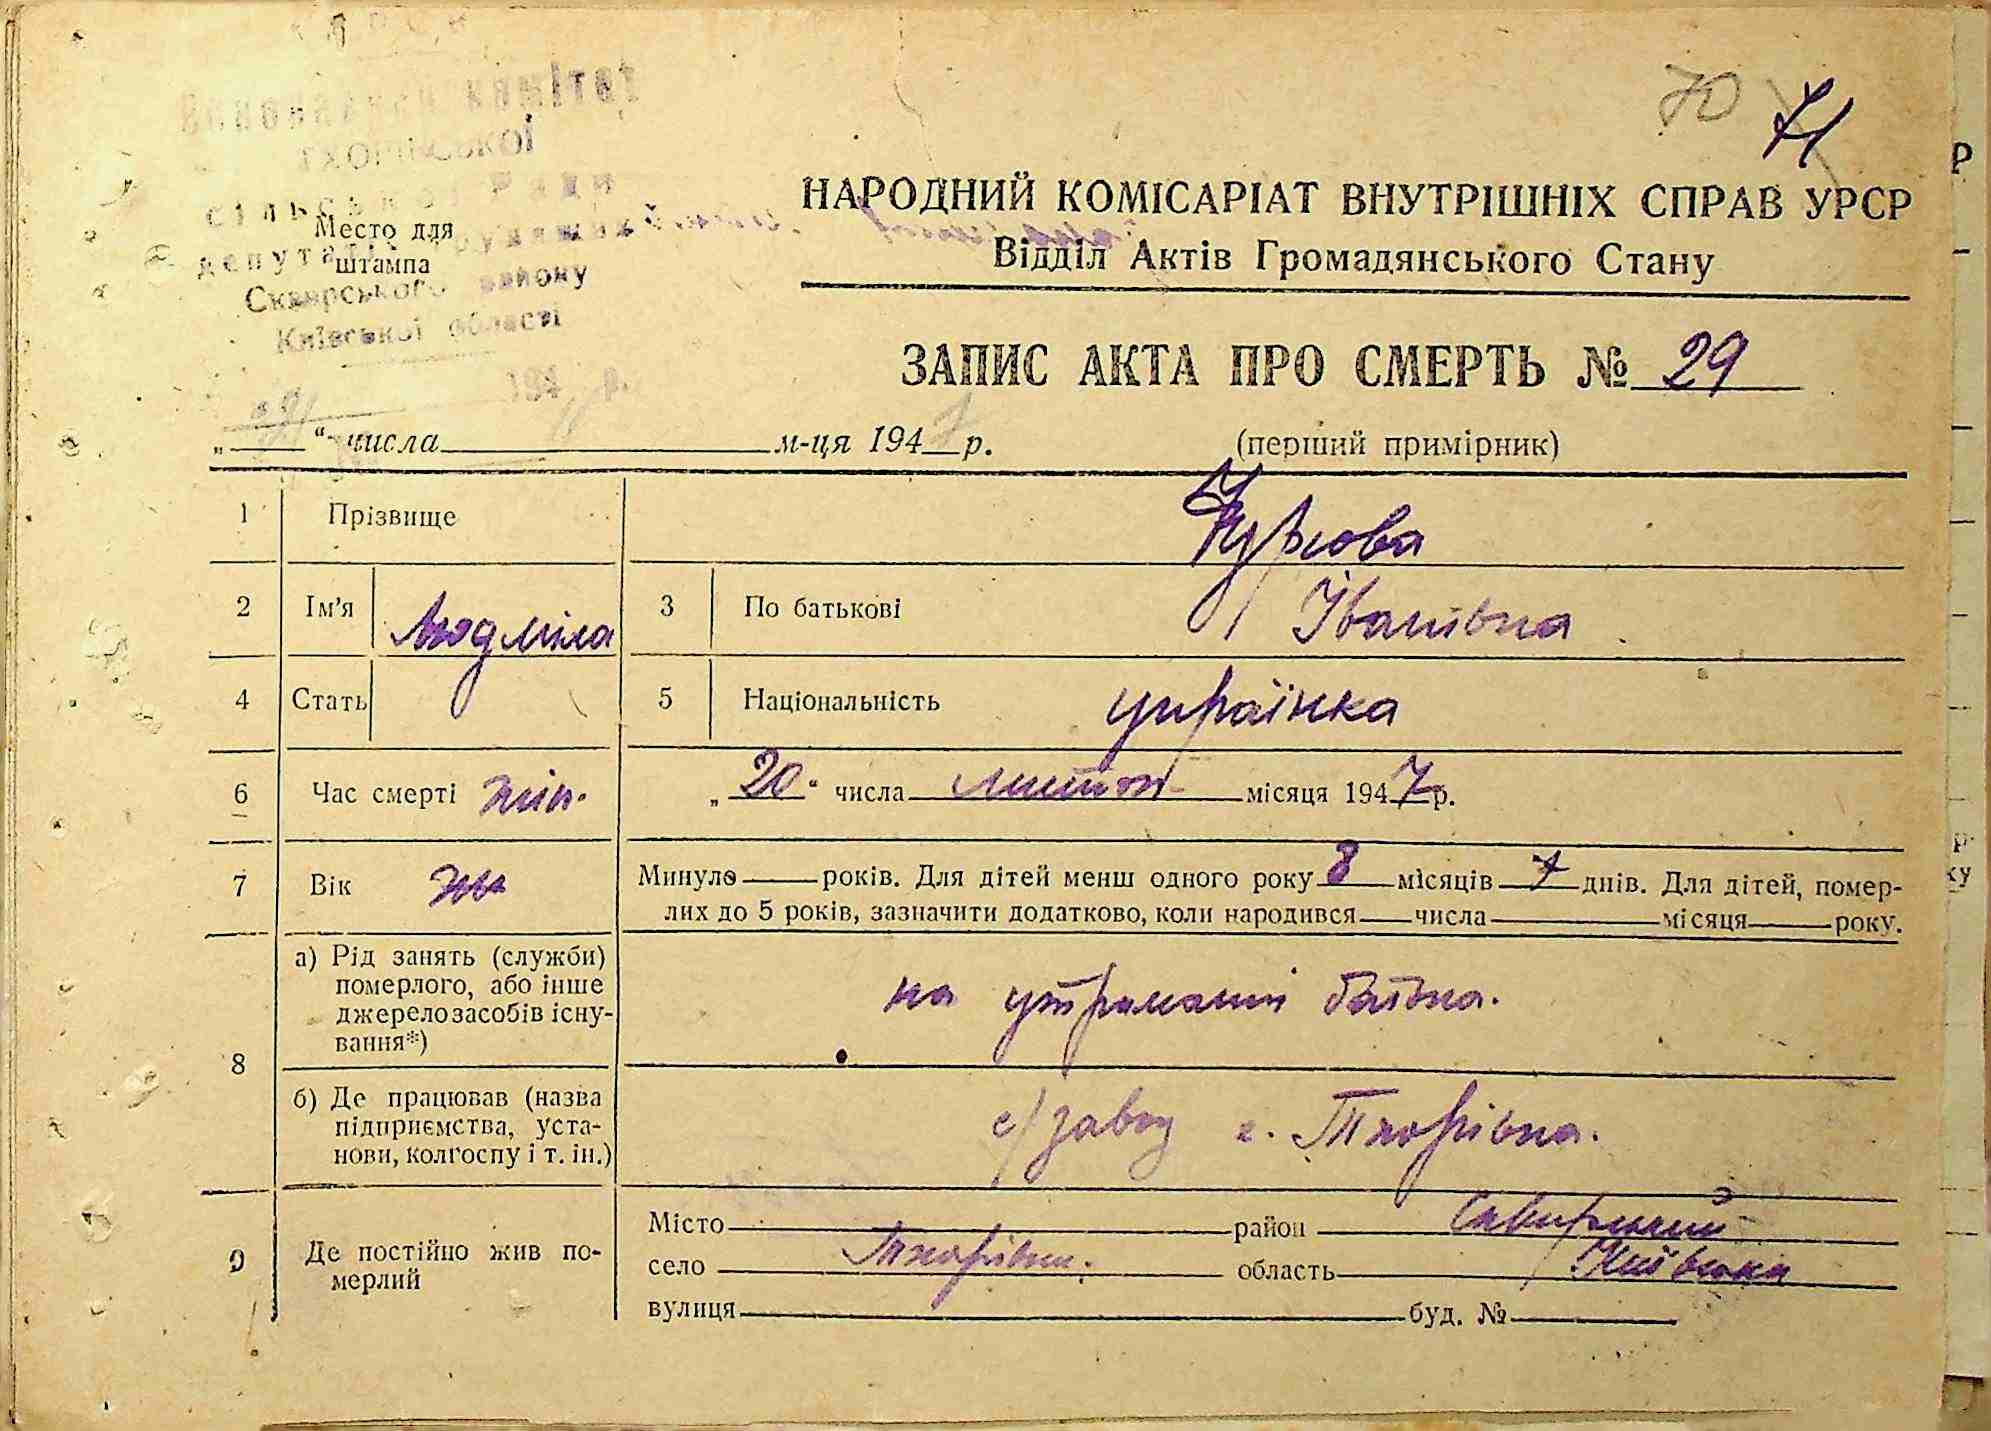 70 71
комітет
сільської Ради
депутатів
Сквирського району
Київської області
Место для
штампа
НАРОДНИЙ КОМІСАРІАТ ВНУТРІШНІХ СПРАВ УРСР
Відділ Актів Громадянського Стану
ЗАПИС АКТА ПРО СМЕРТЬ № 29
„ “ числа м-ця 1947 р. (перший примірник)
1 Прізвище
2 Ім'я Людміла 3 По батькові Іванівна
4 Стать 5 Національність українка
6 Час смерті жін. „20“ числа лютого місяця 1947 р.
7 Вік Минуло років. Для дітей менш одного року 8 місяців 7 днів. Для дітей, помер-
лих до 5 років, зазначити додатково, коли народився числа місяця року.
8 а) Рід занять (служби)
померлого, або інше
джерело засобів існу-
вання*)
на утриманні батька.
б) Де працював (назва
підприємства, уста-
нови, колгоспу і т. ін.)
с/завод с. Тхорівка.
9 Де постійно жив по-
мерлий
Місто район Сквирський
село Тхорівка. область Київська
вулиця буд. №